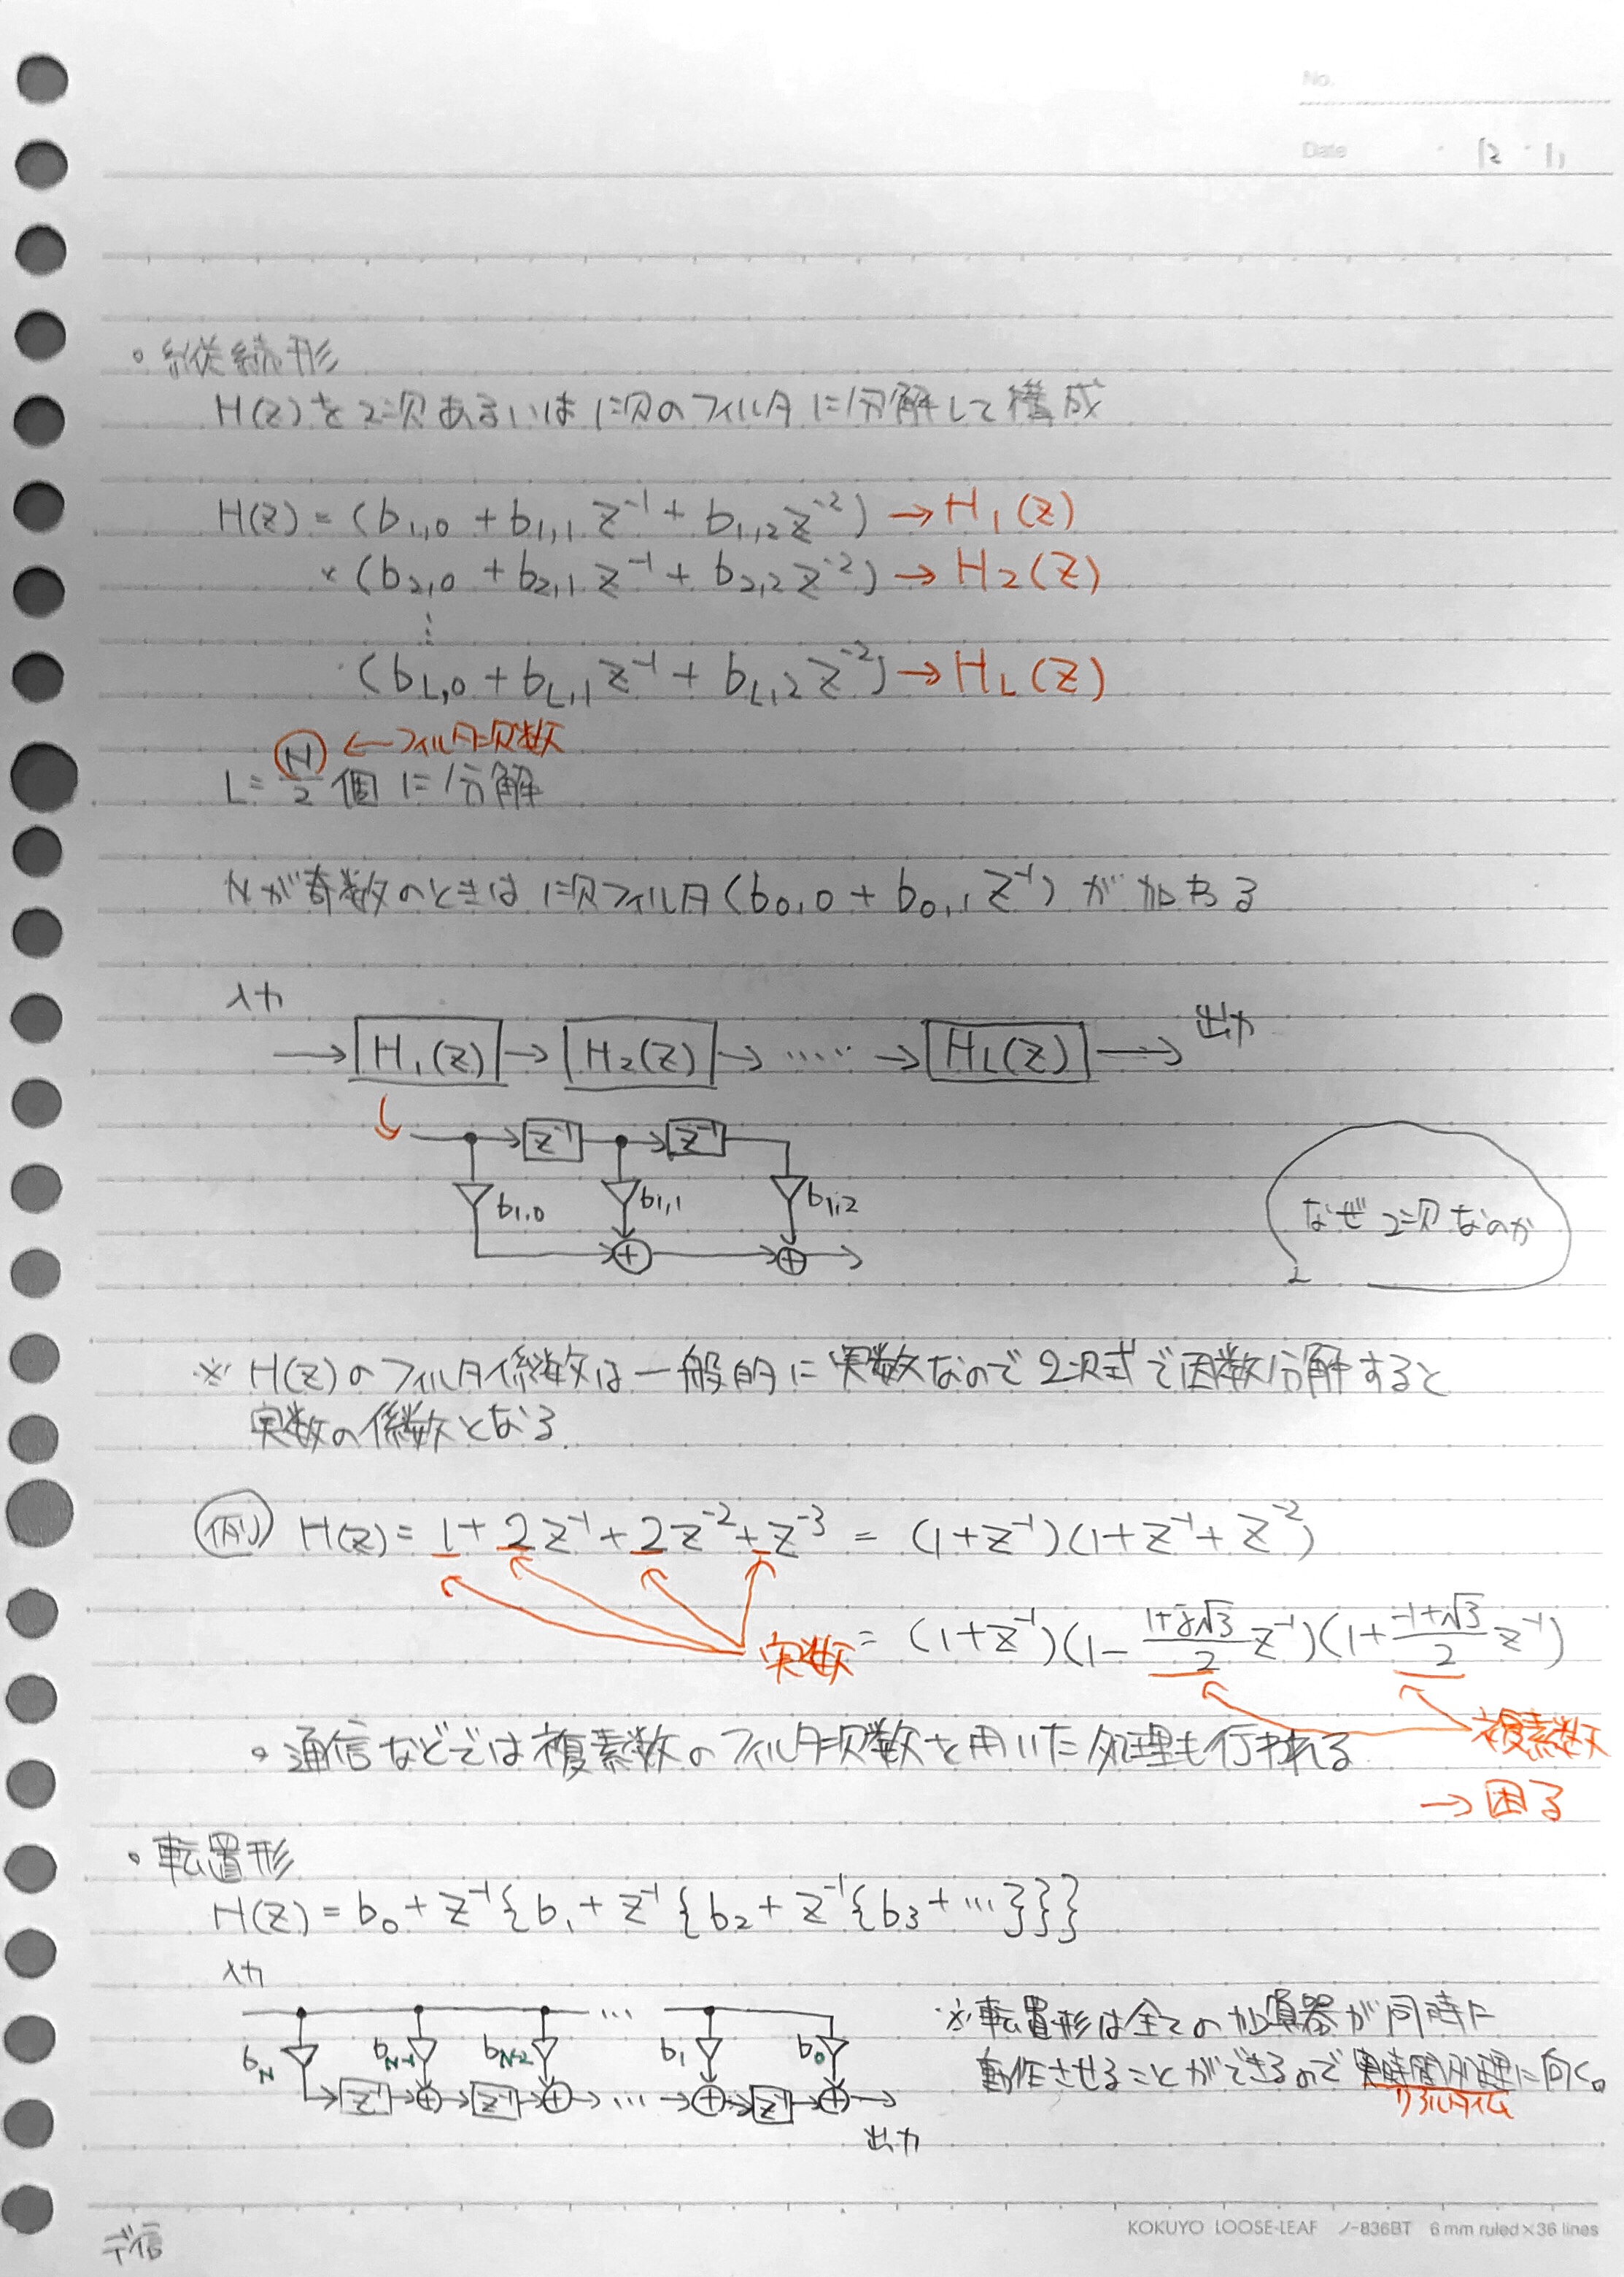 No.
Date 12 · 11
。縦続形
H(z)を2次あるいは1次のフィルタに分解して構成
H(z) = (b1,0 + b1,1 z⁻¹ + b1,2 z⁻²) → H1(z)
× (b2,0 + b2,1 z⁻¹ + b2,2 z⁻²) → H2(z)
⋮
· (bL,0 + bL,1 z⁻¹ + bL,2 z⁻²) → HL(z)
L = N/2 個に分解 ← フィルタ次数
Nが奇数のときは1次フィルタ(b0,0 + b0,1 z⁻¹)が加わる
入力
→ H1(z) → H2(z) → ····· → HL(z) → 出力
z⁻¹ z⁻¹
b1,0 b1,1 b1,2
+ +
なぜ2次なのか
※ H(z)のフィルタ係数は一般的に実数なので2次式で因数分解すると
実数の係数となる.
例) H(z) = 1 + 2z⁻¹ + 2z⁻² + z⁻³ = (1+z⁻¹)(1+z⁻¹+z⁻²)
実数 = (1+z⁻¹)(1 - (1+j√3)/2 z⁻¹)(1 + (-1+√3)/2 z⁻¹)
複素数
→ 困る
。通信などでは複素数のフィルタ次数を用いた処理も行われる
。転置形
H(z) = b0 + z⁻¹{b1 + z⁻¹{b2 + z⁻¹{b3 + ···}}}
入力
···
bN bN-1 bN-2 b1 b0
z⁻¹ → + → z⁻¹ → + → ··· → + → z⁻¹ → + →
出力
※転置形は全ての加算器が同時に
動作させることができるので実時間処理に向く。
リアルタイム
デ信
KOKUYO LOOSE-LEAF ノ-836BT 6 mm ruled×36 lines